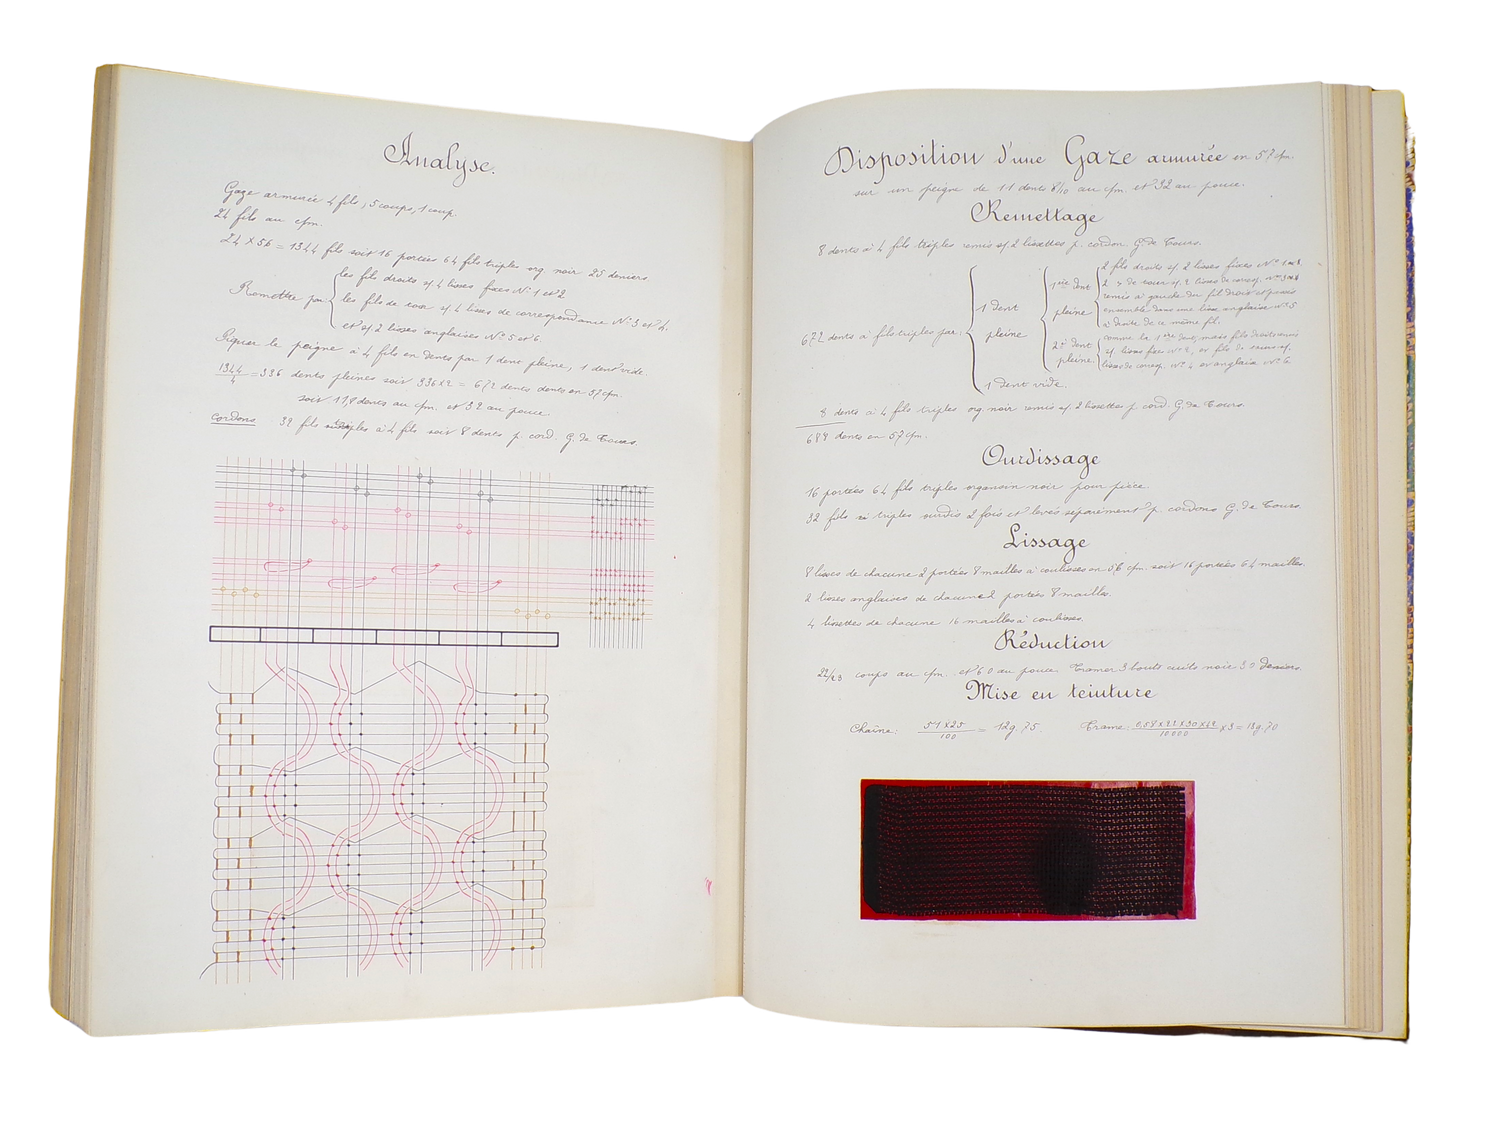 Analyse.
Gaze armurée 4 fils, 5 coups, 1 coup.
24 fils au c/m.
24 x 56 = 1344 fils soit 16 portées 64 fils triples org. noir 25 deniers.
Remettre par
les fils droits s/ 4 lisses fixes N° 1 et 2
les fils de tour s/ 4 lisses de correspondance N° 3 et 4.
et s/ 2 lisses anglaises N° 5 et 6.
Piquer le peigne à 4 fils en dents par 1 dent pleine, 1 dent vide.
1344/4 = 336 dents pleines soit 336 x 2 = 672 dents dents en 57 c/m.
soit 11,8 dents au c/m. et 32 au pouce
Cordons 32 fils triples à 4 fils soit 8 dents p. cord. G. de Tours
Disposition d'une Gaze armurée en 57 c/m.
sur un peigne de 11 dents 8/10 au c/m. et 32 au pouce.
Remettage
8 dents à 4 fils triples remis s/ 2 lissettes p. cordon. G. de Tours.
672 dents à fils triples par:
1 dent pleine
1ère dent pleine
2 fils droits s/ 2 lisses fixes N°
2 " de tour s/ 2 lisses de corresp. N°
remis à gauche du fil droit et passés
ensemble dans une lisse anglaise N° 5
à droite de ce même fil.
2e dent pleine
comme la 1ère dent, mais fils droits remis
s/ lisses fixes N° 2, et fils de tours s/
lisses de corresp. N° 4 et anglaise N° 6
1 dent vide.
8 dents à 4 fils triples org. noir remis s/ 2 lissettes p. cord. G. de Tours.
688 dents en 57 c/m.
Ourdissage
16 portées 64 fils triples organsin noir pour pièce.
32 fils triples ourdis 2 fois et levés séparément p. cordons G. de Tours.
Lissage
8 lisses de chacune 2 portées 8 mailles à coulisses en 56 c/m. soit 16 portées 64 mailles.
2 lisses anglaises de chacune 2 portées 8 mailles.
4 lissettes de chacune 16 mailles à coulisses.
Réduction
22/23 coups au c/m. et 60 au pouce. Tramer 3 bouts cuits noir 30 deniers.
Mise en teinture
Chaîne: 51 x 25 / 100 = 12g.75. Trame: 0,58 x 22 x 30 x / 10000 x 3 = g.70